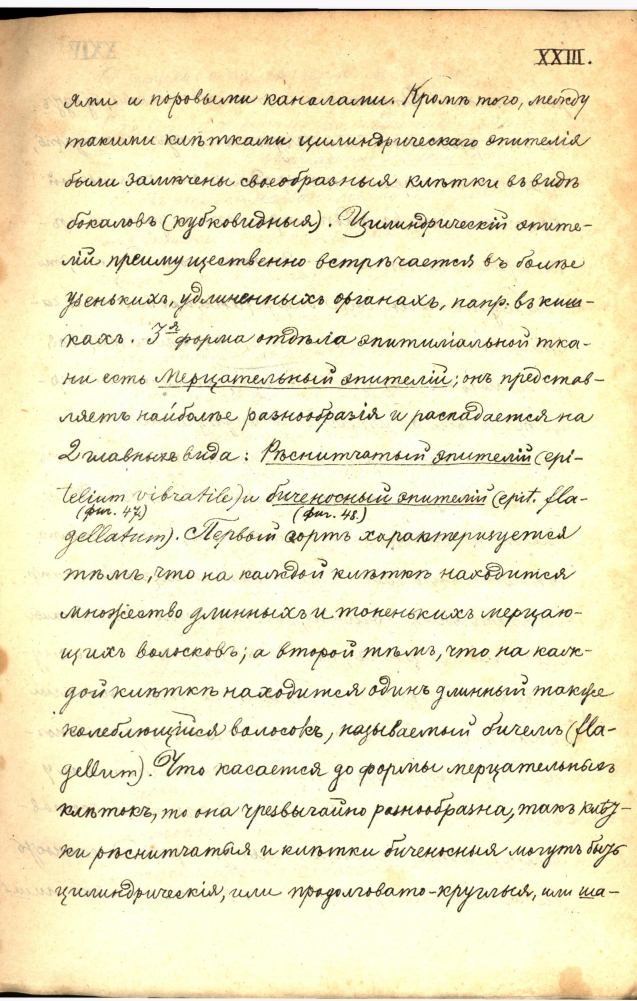 XXIII.
ями и поровыми каналами. Кромѣ того, между
такими клѣтками цилиндрическаго эпителія
были замѣчены своеобразныя клѣтки въ видѣ
бокаловъ (кубковидныя). Цилиндрическій эпите-
лій преимущественно встрѣчается въ болѣе
узенькихъ, удлиненныхъ органахъ, напр. въ киш-
кахъ. 3я форма отдѣла эпителіальной тка-
ни есть Мерцательный эпителій; онъ представ-
ляетъ наиболѣе разнообразія и распадается на
2 главныхъ вида: Рѣснитчатый эпителій (epi-
telium vibratile) и биченосный эпителій (epit. fla-
(фиг. 47.) (фиг. 48.)
gellatum). Первый сортъ характеризуется
тѣмъ, что на каждой клѣткѣ находится
множество длинныхъ и тоненькихъ мерцаю-
щихъ волосковъ; а второй тѣмъ, что на каж-
дой клѣткѣ находится одинъ длинный также
колеблющійся волосокъ, называемый бичемъ (fla-
gellum). Что касается до формы мерцательныхъ
клѣтокъ, то она чрезвычайно разнообразна, такъ клѣт-
ки рѣснитчатыя и клѣтки биченосныя могутъ быть
цилиндрическія, или продолговато-круглыя, или ша-